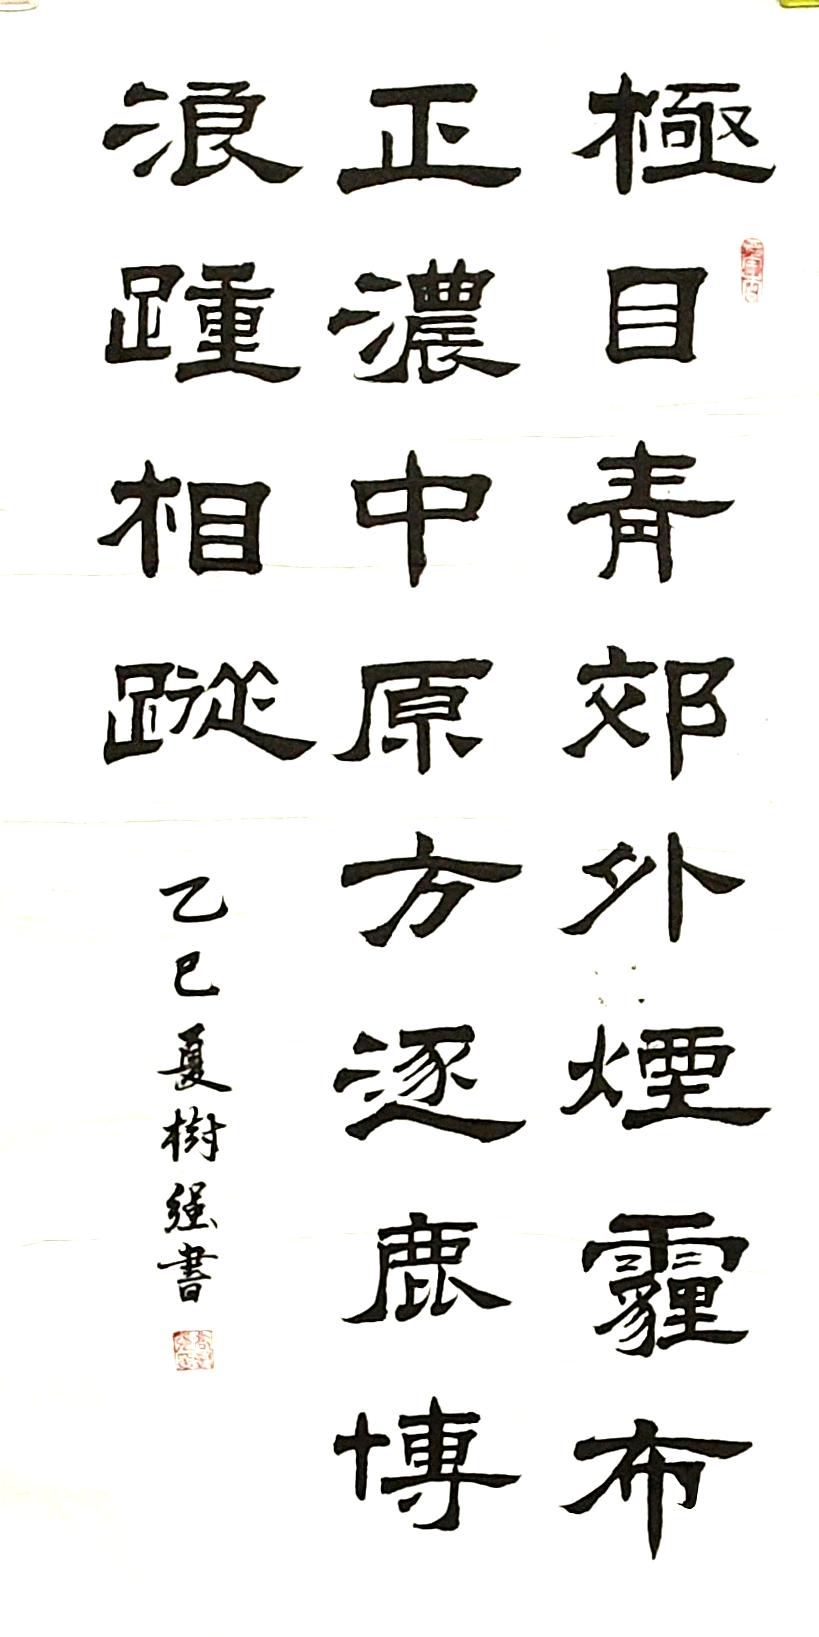 極目青郊外煙霾布
正濃中原方逐鹿博
浪踵相蹤
乙巳夏樹强書